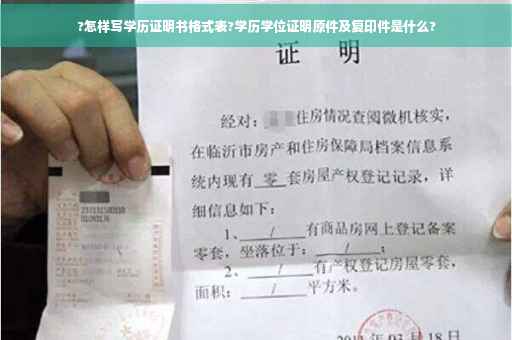 ?怎样写学历证明书格式表?学历学位证明原件及复印件是什么?
证 明
经对: 住房情况查阅微机核实,
在临沂市房产和住房保障局档案信息系
统内现有 零 套房屋产权登记记录,详
细信息如下:
1、 / 有商品房网上登记备案
零套,坐落位于: / ;
2、 / 有产权登记房屋零套,
面积: / 平方米。
03月18日